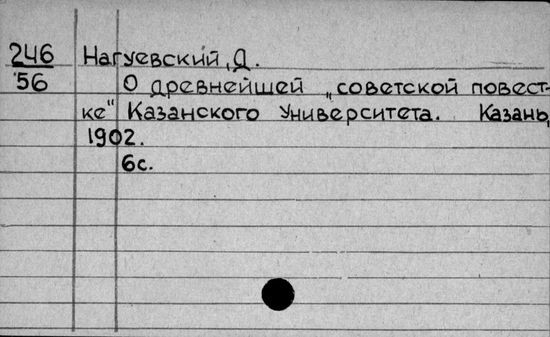 246 Нагуевский, Д.
56 О древнейшей „советской повест-
ке" Казанского Университета. Казань,
1902.
6с.